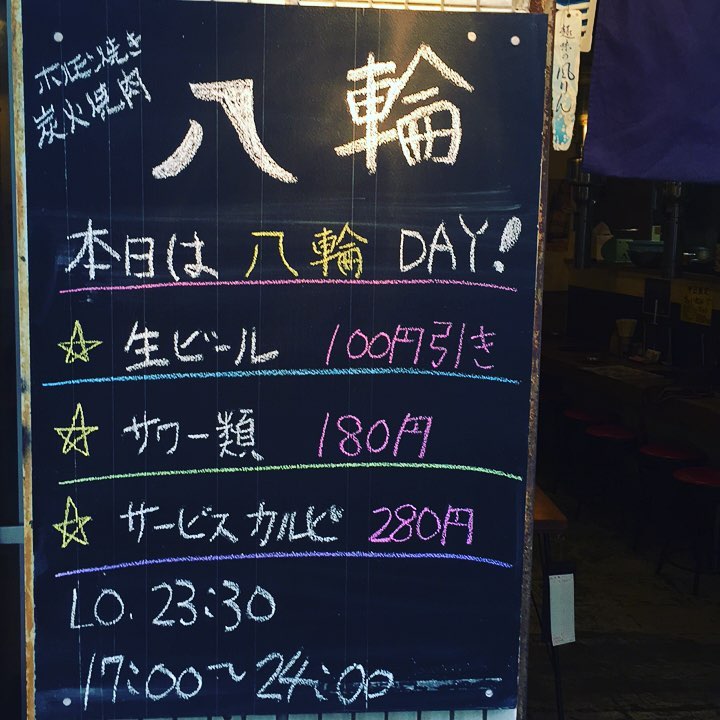 ホルモン焼き
炭火焼肉
八輪
本日は 八輪 DAY!
☆ 生ビール 100円引き
☆ サワー類 180円
☆ サービスカルビ 280円
LO. 23:30
17:00〜24:00
趣味の風りん